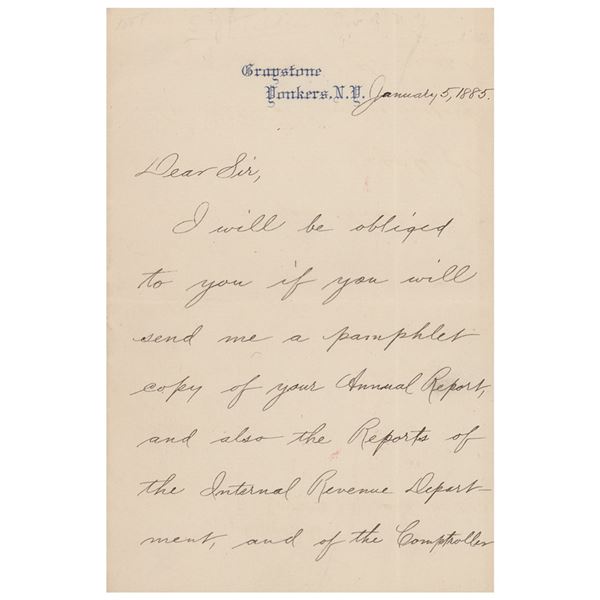 Graystone
Yonkers, N.Y. January 5, 1885.
Dear Sir,
I will be obliged
to you if you will
send me a pamphlet
copy of your Annual Report,
and also the Reports of
the Internal Revenue Depart-
ment, and of the Comptroller